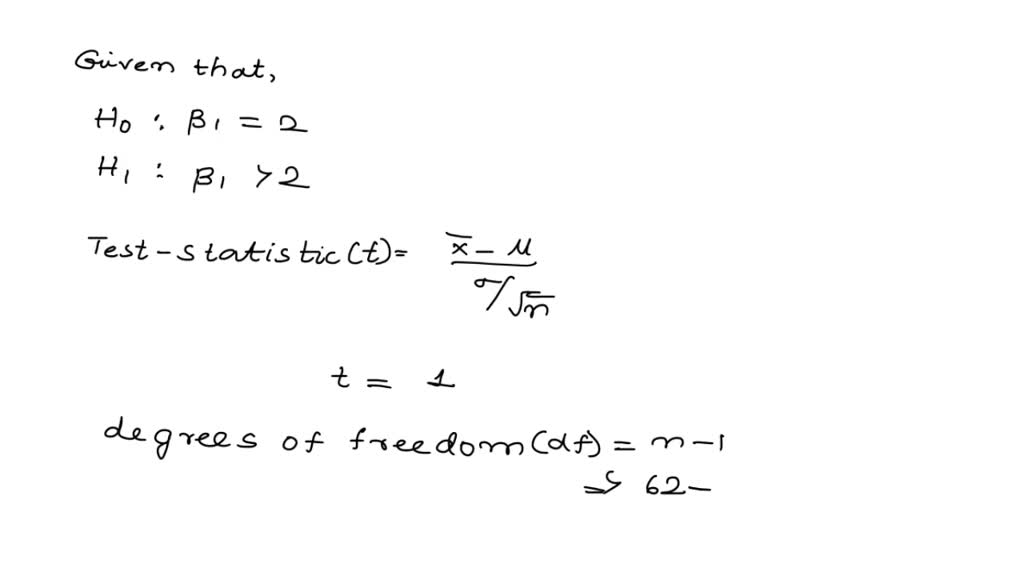 Given that,
H₀ : β₁ = 2
H₁ : β₁ > 2
Test-statistic(t) = x̄ - μ / σ/√n
t = 1
degrees of freedom(df) = n-1
⇒ 62-